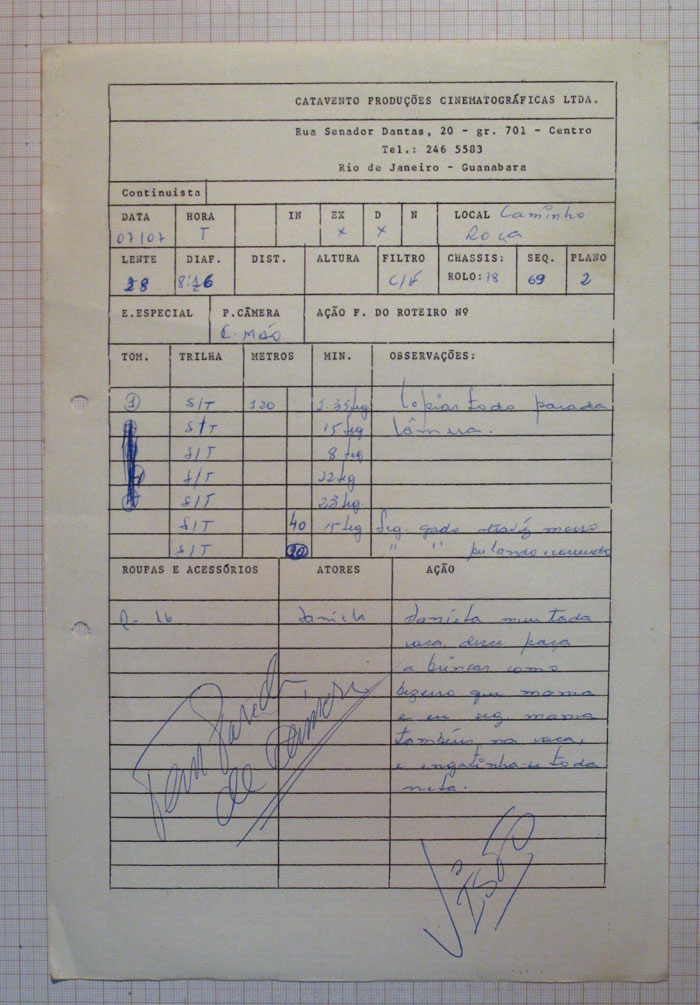 CATAVENTO PRODUÇÕES CINEMATOGRÁFICAS LTDA.
Rua Senador Dantas, 20 - gr. 701 - Centro
Tel.: 246 5583
Rio de Janeiro - Guanabara
Continuista
DATA HORA IN EX D N LOCAL Caminho
07/07 T x x Roça
LENTE DIAF. DIST. ALTURA FILTRO CHASSIS: SEQ. PLANO
28 8:16 C/F ROLO: 78 69 2
E.ESPECIAL P.CÂMERA AÇÃO F. DO ROTEIRO Nº
C-MÃO
TOM. TRILHA METROS MIN. OBSERVAÇÕES:
1 S/T 120 Copiar todo parada
S/T 15 seg câmera.
S/T 8 seg
S/T 22 seg
S/T 23 seg
S/T 40 15 seg Seg. gado
S/T " " pulando correndo
ROUPAS E ACESSÓRIOS ATORES AÇÃO
R- 16 Daniela Daniela montada
vaca, desce
a brincar como
bezerro que mama
e em seg. mama
também na vaca,
e engatinha-se toda
nela.
Tem
de
VISTO